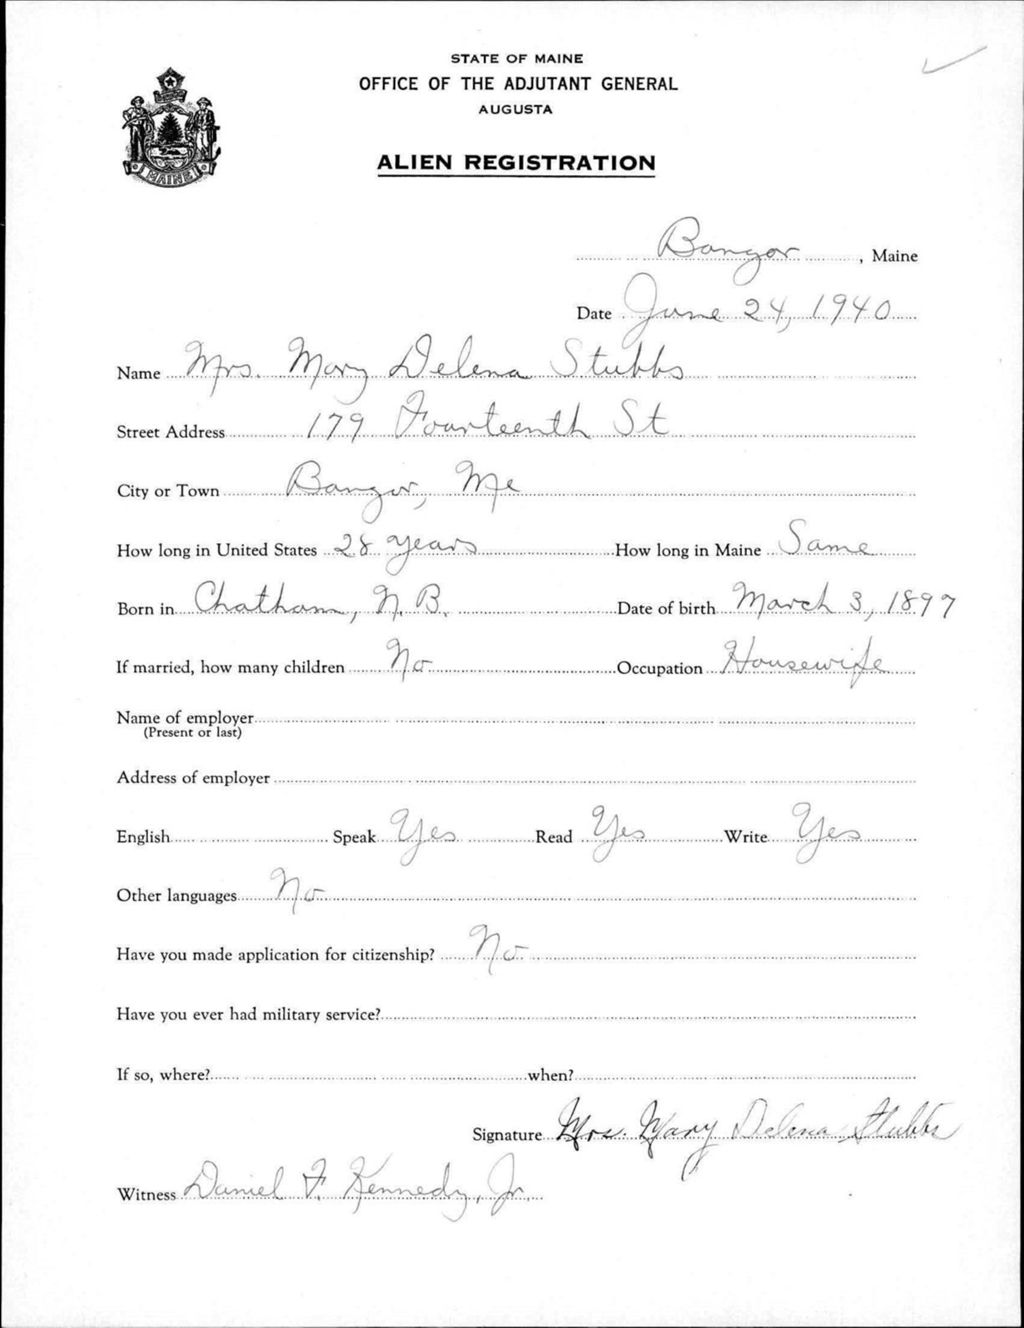 STATE OF MAINE
OFFICE OF THE ADJUTANT GENERAL
AUGUSTA
ALIEN REGISTRATION
MAINE
Bangor, Maine
Date June 24, 1940
Name Mrs. Mary Delena Stubbs
Street Address 179 Fourteenth St
City or Town Bangor, Me
How long in United States 28 years How long in Maine Same
Born in Chatham, N. B. Date of birth March 3, 1897
If married, how many children No Occupation Housewife
Name of employer
(Present or last)
Address of employer
English Speak Yes Read Yes Write Yes
Other languages No
Have you made application for citizenship? No
Have you ever had military service?
If so, where? when?
Signature Mrs. Mary Delena Stubbs
Witness Daniel F. Kennedy, Jr.